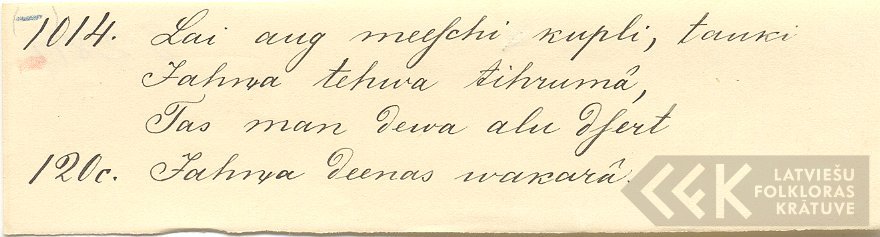 1014. Lai aug meeſchi kupli, tauki
Jahņa tehwa tihrumâ,
Tas man dewa alu dſert
120c. Jahņa deenas wakarâ.
LATVIEŠU
FOLKLORAS
KRĀTUVE